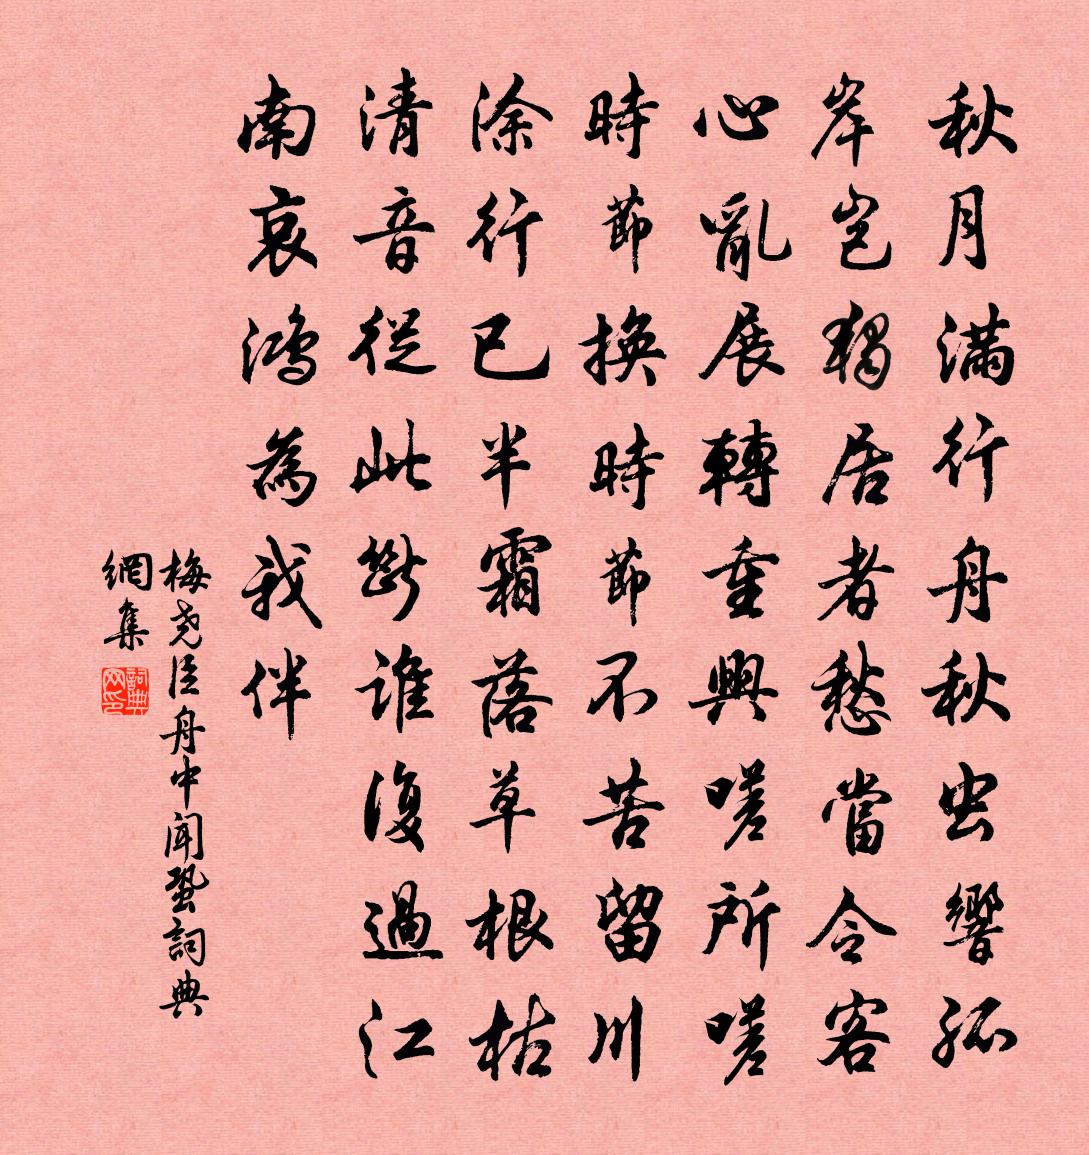 秋月滿行舟秋虫響孤
岸豈獨居者愁當令客
心亂展轉重興嗟所嗟
時節換時節不苦留川
涂行已半霜落草根枯
清音從此斷誰復過江
南哀鴻為我伴
梅尧臣舟中闻蛩詞典
網集
詞典网印